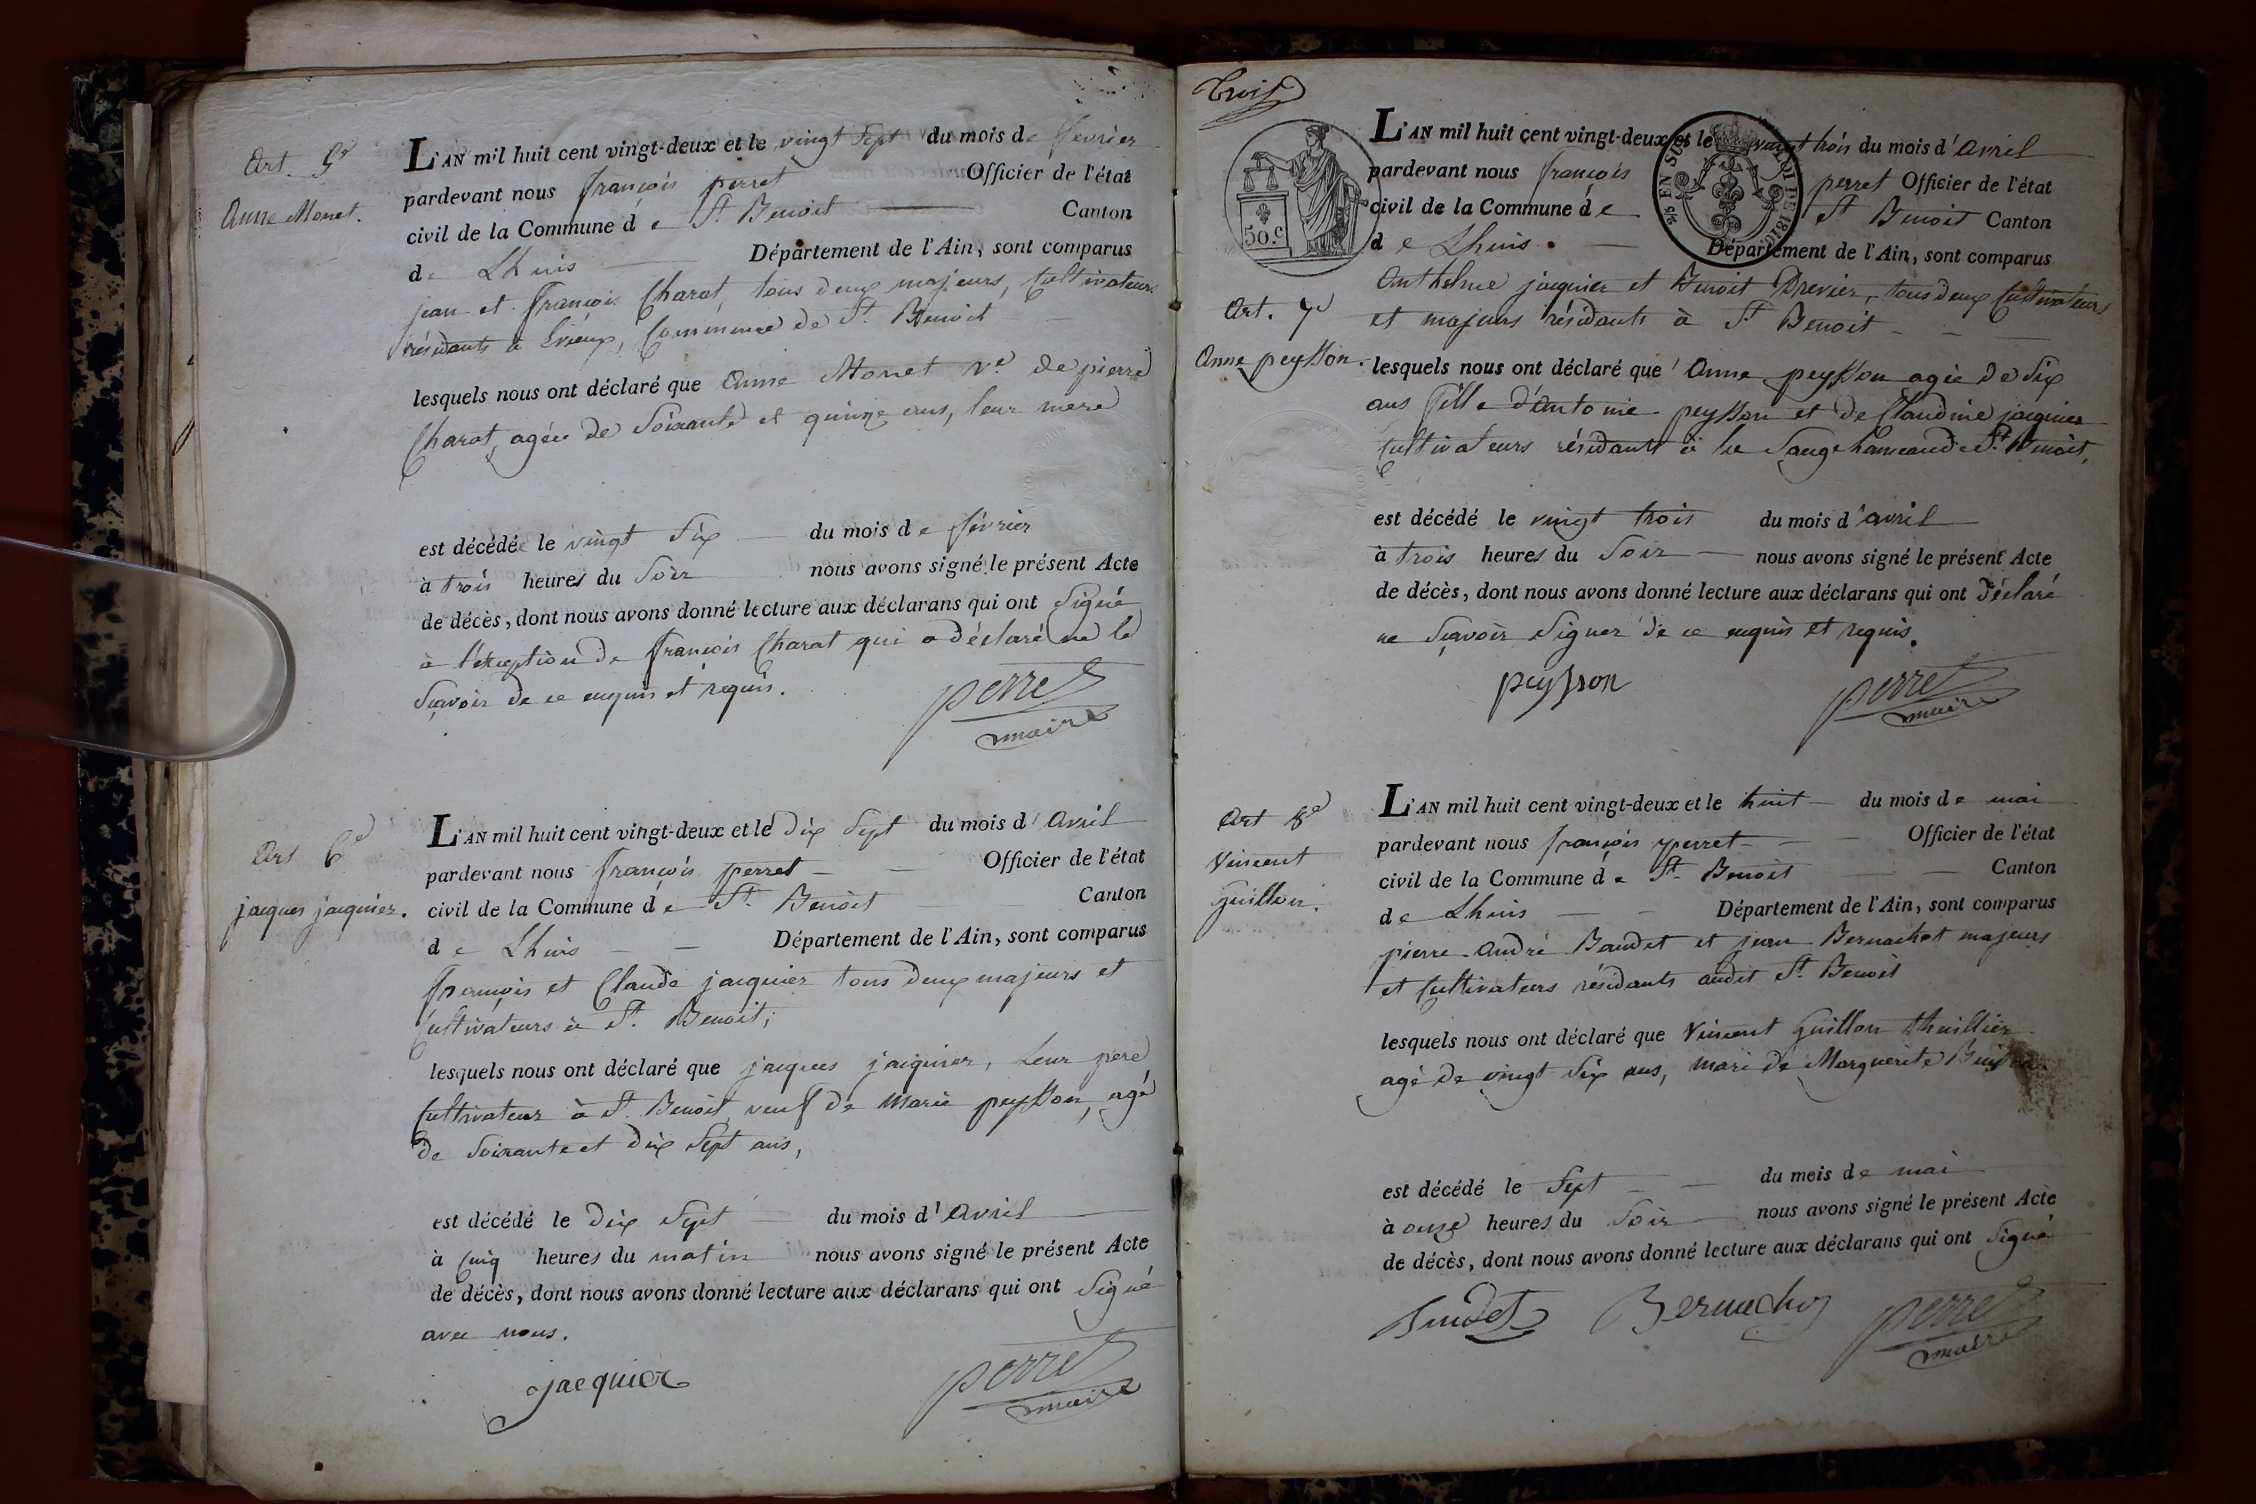 Art. 5e
Anne Monet.
L'AN mil huit cent vingt-deux et le vingt Sept du mois de février
pardevant nous françois perret Officier de l'état
civil de la Commune de St. Benoit Canton
de Lhuis Département de l'Ain, sont comparus
jean et françois Charat, tous deux majeurs, Cultivateurs
résidants à Evieux, Commune de St. Benoit
lesquels nous ont déclaré que Anne Monet ve. de pierre
Charat, agée de Soixante et quinze ans, leur mere
est décédée le vingt Six du mois de février
à trois heures du Soir nous avons signé le présent Acte
de décès, dont nous avons donné lecture aux déclarans qui ont Signé
à l'exception de françois Charat qui a déclaré ne le
Sçavoir de ce enquis et requis.
perret
maire
Art 6e
jacques jacquier.
L'AN mil huit cent vingt-deux et le dix Sept du mois d'Avril
pardevant nous françois perret Officier de l'état
civil de la Commune de St. Benoit Canton
de Lhuis Département de l'Ain, sont comparus
françois et Claude jacquier tous deux majeurs et
Cultivateurs à St. Benoit;
lesquels nous ont déclaré que jacques jacquier, Leur pere
Cultivateur à St. Benoit veuf de Marie peysson, agé
de Soixante et dix Sept ans,
est décédé le dix Sept du mois d'Avril
à Cinq heures du matin nous avons signé le présent Acte
de décès, dont nous avons donné lecture aux déclarans qui ont Signé
avec nous.
jacquier
perret
maire
Trois
50.c
Art. 7e
Anne peysson.
L'AN mil huit cent vingt-deux et le vingt trois du mois d'Avril
pardevant nous françois perret Officier de l'état
civil de la Commune de St Benoit Canton
de Lhuis. Département de l'Ain, sont comparus
Anthelme jacquier et Benoit Drevier, tous deux Cultivateurs
et majeurs résidants à St Benoit
lesquels nous ont déclaré que Anne peysson agée de Six
ans fille d'antoine peysson et de Claudine jacquier
Cultivateurs résidants à la Sauge hameau de St. Benoit,
est décédé le vingt trois du mois d'avril
à trois heures du Soir nous avons signé le présent Acte
de décès, dont nous avons donné lecture aux déclarans qui ont déclaré
ne Sçavoir Signer de ce enquis et requis.
peysson
perret
maire
Art 8e
Vincent
Guillon.
L'AN mil huit cent vingt-deux et le huit du mois de mai
pardevant nous françois perret Officier de l'état
civil de la Commune de St. Benoit Canton
de Lhuis Département de l'Ain, sont comparus
pierre André Baudet et jean Bernachot majeurs
et Cultivateurs résidants audit St. Benoit
lesquels nous ont déclaré que Vincent Guillon thuillier
agé de vingt Six ans, mari de Marguerite
est décédé le Sept du mois de mai
à onze heures du Soir nous avons signé le présent Acte
de décès, dont nous avons donné lecture aux déclarans qui ont Signé
Baudet
Bernachot
perret
maire